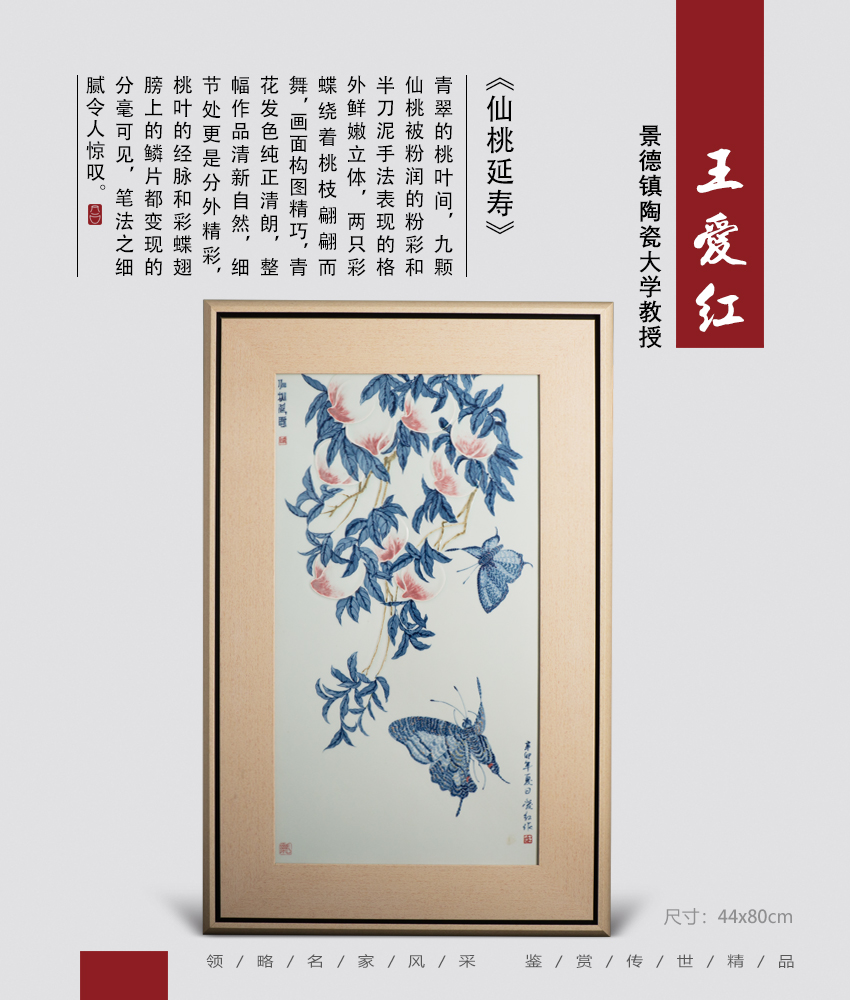 王爱红
景德镇陶瓷大学教授
《仙桃延寿》
青翠的桃叶间，九颗
仙桃被粉润的粉彩和
半刀泥手法表现的格
外鲜嫩立体，两只彩
蝶绕着桃枝翩翩而
舞，画面构图精巧，青
花发色纯正清朗，整
幅作品清新自然，细
节处更是分外精彩，
桃叶的经脉和彩蝶翅
膀上的鳞片都变现的
分毫可见，笔法之细
腻令人惊叹。
辛卯年夏日爱红作
尺寸：44x80cm
领/略/名/家/风/采 鉴/赏/传/世/精/品